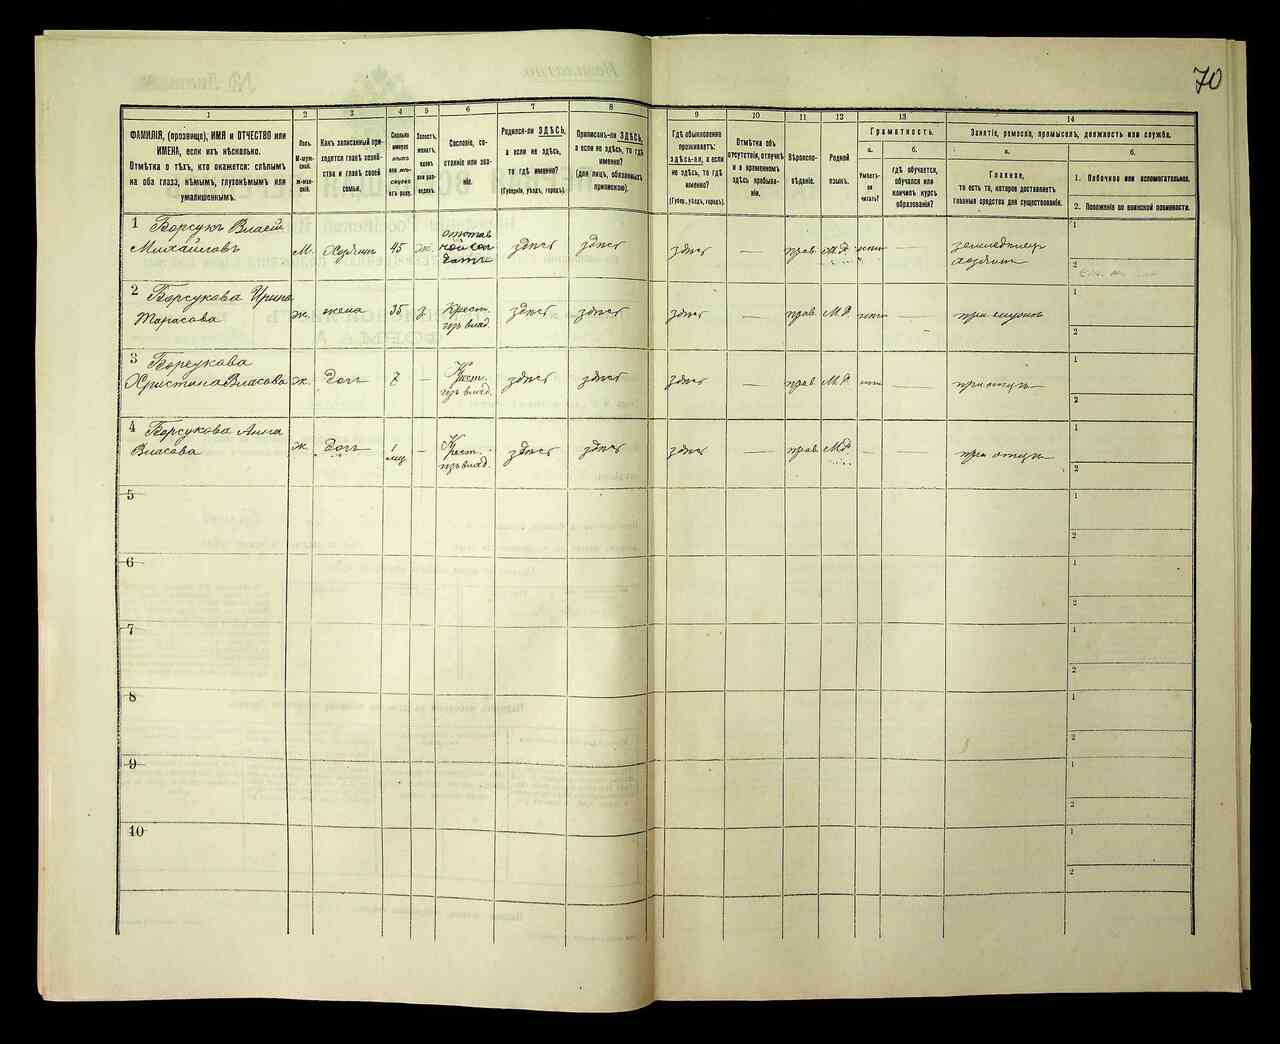 70
1 2 3 4 5 6 7 8 9 10 11 12 13 14
ФАМИЛІЯ, (прозвище), ИМЯ и ОТЧЕСТВО или
ИМЕНА, если ихъ нѣсколько.
Отмѣтка о тѣхъ, кто окажется: слѣпымъ
на оба глаза, нѣмымъ, глухонѣмымъ или
умалишеннымъ.
Полъ.
М-муж-
ской.
ж-жен-
скій.
Какъ записанный при-
ходится главѣ хозяй-
ства и главѣ своей
семьи.
Сколько
Холостъ,
женатъ,
вдовъ
или раз-
веденъ.
Сословіе, со-
стояніе или зва-
ніе.
Родился-ли ЗДѢСЬ,
а если не здѣсь,
то гдѣ именно?
(Губернія, уѣздъ, городъ).
Приписанъ-ли ЗДѢСЬ,
а если не здѣсь, то гдѣ
именно?
(для лицъ, обязанныхъ
припискою).
Гдѣ обыкновенно
проживаетъ:
здѣсь-ли, а если
не здѣсь, то гдѣ
именно?
(Губер., уѣздъ, городъ).
Отмѣтка объ
отсутствіи, отлучкѣ
и о временномъ
здѣсь пребыва-
ніи.
Вѣроиспо-
вѣданіе.
Родной
языкъ.
Грамотность.
а.
Умѣетъ-
ли
читать?
б.
гдѣ обучается,
обучался или
кончилъ курсъ
образованія?
Занятіе, ремесло, промыселъ, должность или служба.
а.
Главное,
то есть то, которое доставляетъ
главныя средства для существованія.
б.
1. Побочное или вспомогательное.
2. Положеніе по воинской повинности.
1 Борсукъ Власій
Михайловъ
М. Хозяинъ 45 ж.
отстав
ной сол
датъ
здѣсь здѣсь здѣсь — прав. М.Р.
земледѣлецъ
хозяинъ
1
2
2 Борсукова Ирина
Тарасова
ж. жена 35 з.
Крест.
изъ влад.
здѣсь здѣсь здѣсь — прав. М.Р. — при мужѣ
1
2
3 Борсукова
Христина Власова
ж. дочь 7 —
Крест.
изъ влад.
здѣсь здѣсь здѣсь — прав. М.Р. — при отцѣ
1
2
4 Борсукова Анна
Власова
ж. дочь 1 мц —
Крест.
изъ влад.
здѣсь здѣсь здѣсь — прав. М.Р. — — при отцѣ
1
2
5
1
2
6
1
2
7
1
2
8
1
2
9
1
2
10
1
2